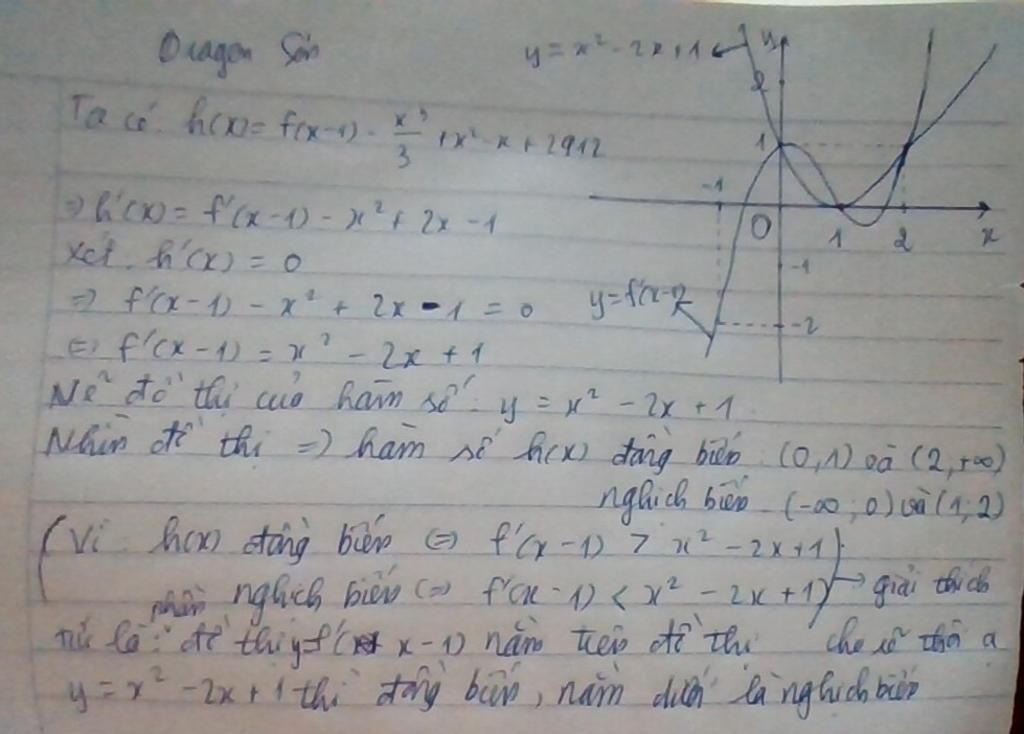 Dragon Sơn
y = x² - 2x + 1
y
2
1
-1
O
1
2
x
-1
y = f'(x-1)
-2
Ta có: h(x) = f(x-1) - x³/3 + x² - x + 2912
=> h'(x) = f'(x-1) - x² + 2x - 1
Xét: h'(x) = 0
=> f'(x-1) - x² + 2x - 1 = 0
<=> f'(x-1) = x² - 2x + 1
Vẽ đồ thị của hàm số: y = x² - 2x + 1
Nhìn đồ thị => hàm số h(x) đồng biến (0,1) và (2,+∞)
nghịch biến (-∞;0) và (1;2)
(Vì: h(x) đồng biến <=> f'(x-1) > x² - 2x + 1)
nghịch biến <=> f'(x-1) < x² - 2x + 1) → giải thích
tức là: phần đồ thị y = f'(x-1) nằm trên đồ thị
y = x² - 2x + 1 thì đồng biến, nằm dưới là nghịch biến